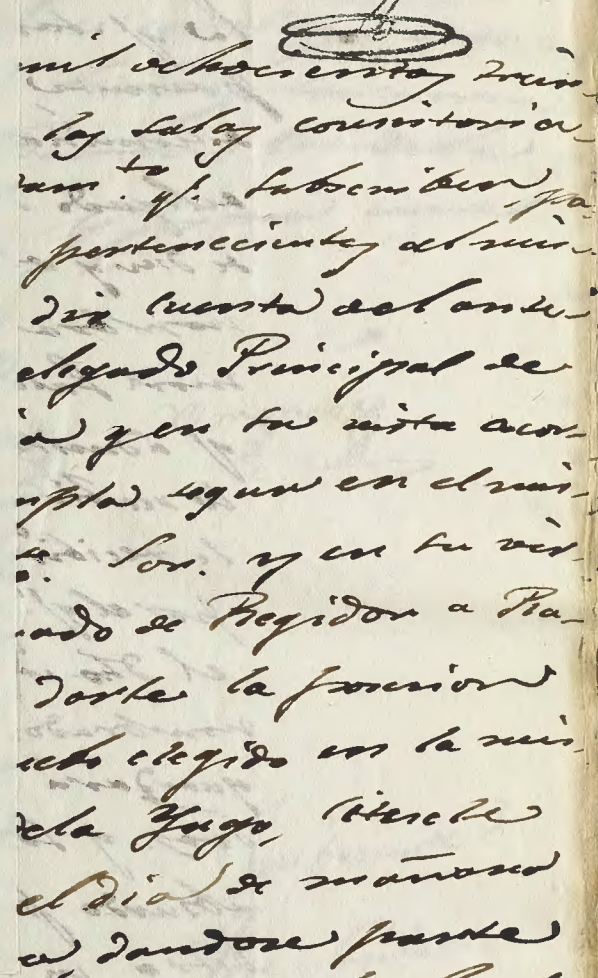 mil ochocientos trein-
las salas consistoria-
am.to q.e subscriben, pa-
pertenecientes al mis-
dió cuenta del ante-
elegado Principal de
a y en su vista acor-
mpla segun en el mis-
Sor. y en su vir-
ado de Regidor a Ra-
darle la posesion
elegido en la mis-
dela Yago, citesele
el dia de mañana
a dandose parte